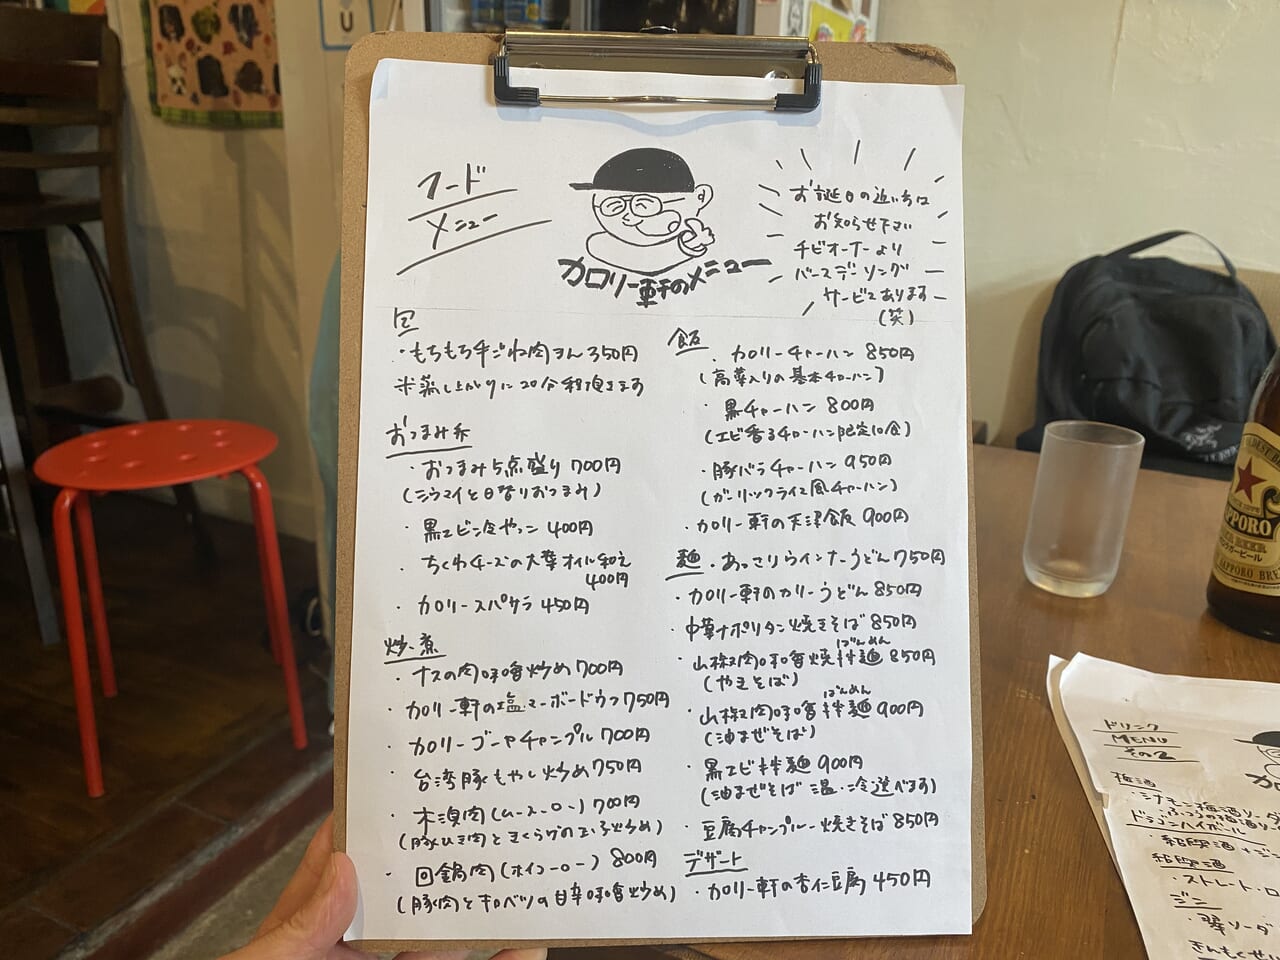 フード
メニュー
カロリー軒のメニュー
お誕生日の近い方は
お知らせ下さい
チビオーナーより
バースデーソング
サービスあります
(笑)
・もちもち手ごね肉まん350円
※蒸し上がりに20分程頂きます
おつまみ系
・おつまみ5点盛り700円
(シウマイと日替りおつまみ)
・黒エビ冷やっこ400円
・ちくわチーズの大葉オイル和え
400円
・カロリースパサラ450円
炒・煮
・ナスの肉味噌炒め700円
・カロリー軒の塩マーボードウフ750円
・カロリーゴーヤチャンプル700円
・台湾豚もやし炒め750円
・木須肉(ムースーロー)700円
(豚ひき肉ときくらげの玉子炒め)
・回鍋肉(ホイコーロー)800円
(豚肉とキャベツの甘辛味噌炒め)
飯
・カロリーチャーハン850円
(高菜入りの基本チャーハン)
・黒チャーハン800円
(エビ香るチャーハン限定10食)
・豚バラチャーハン950円
(ガーリックライス風チャーハン)
・カロリー軒の天津飯900円
麺・あっさりウインナーうどん750円
・カロリー軒のカリーうどん850円
・中華ナポリタン焼きそば850円
ばんめん
・山椒肉味噌焼拌麺850円
(やきそば)
ばんめん
・山椒肉味噌拌麺900円
(油まぜそば)
・黒エビ拌麺900円
(油まぜそば温・冷選べます)
・豆腐チャンプルー焼きそば850円
デザート
・カロリー軒の杏仁豆腐450円
SAPPORO
ドリンク
MENU
その2
梅酒
・シナモン梅酒ソーダ
ドラゴンハイボール
紹興酒
・ストレート・ロ
ジン
・翠ソーダ